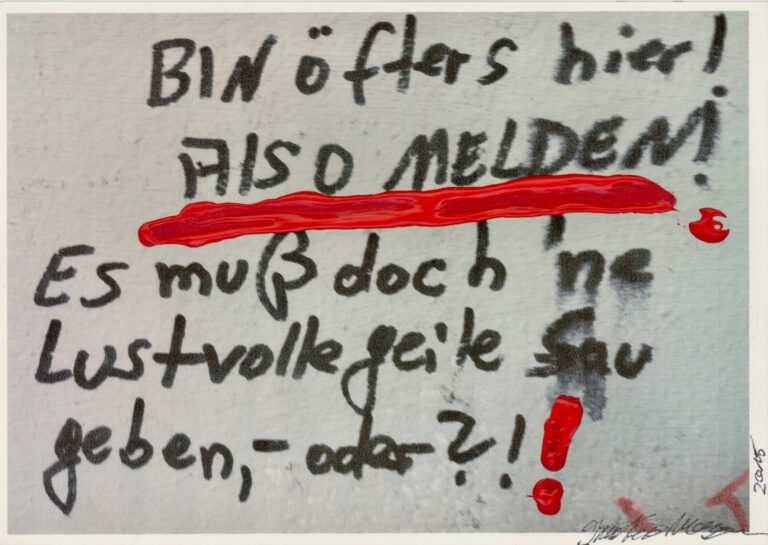 BIN öfters hier!
AlSO MELDEN!
Es muß doch 'ne
Lustvolle geile Sau
geben,- oder-?!!
2015